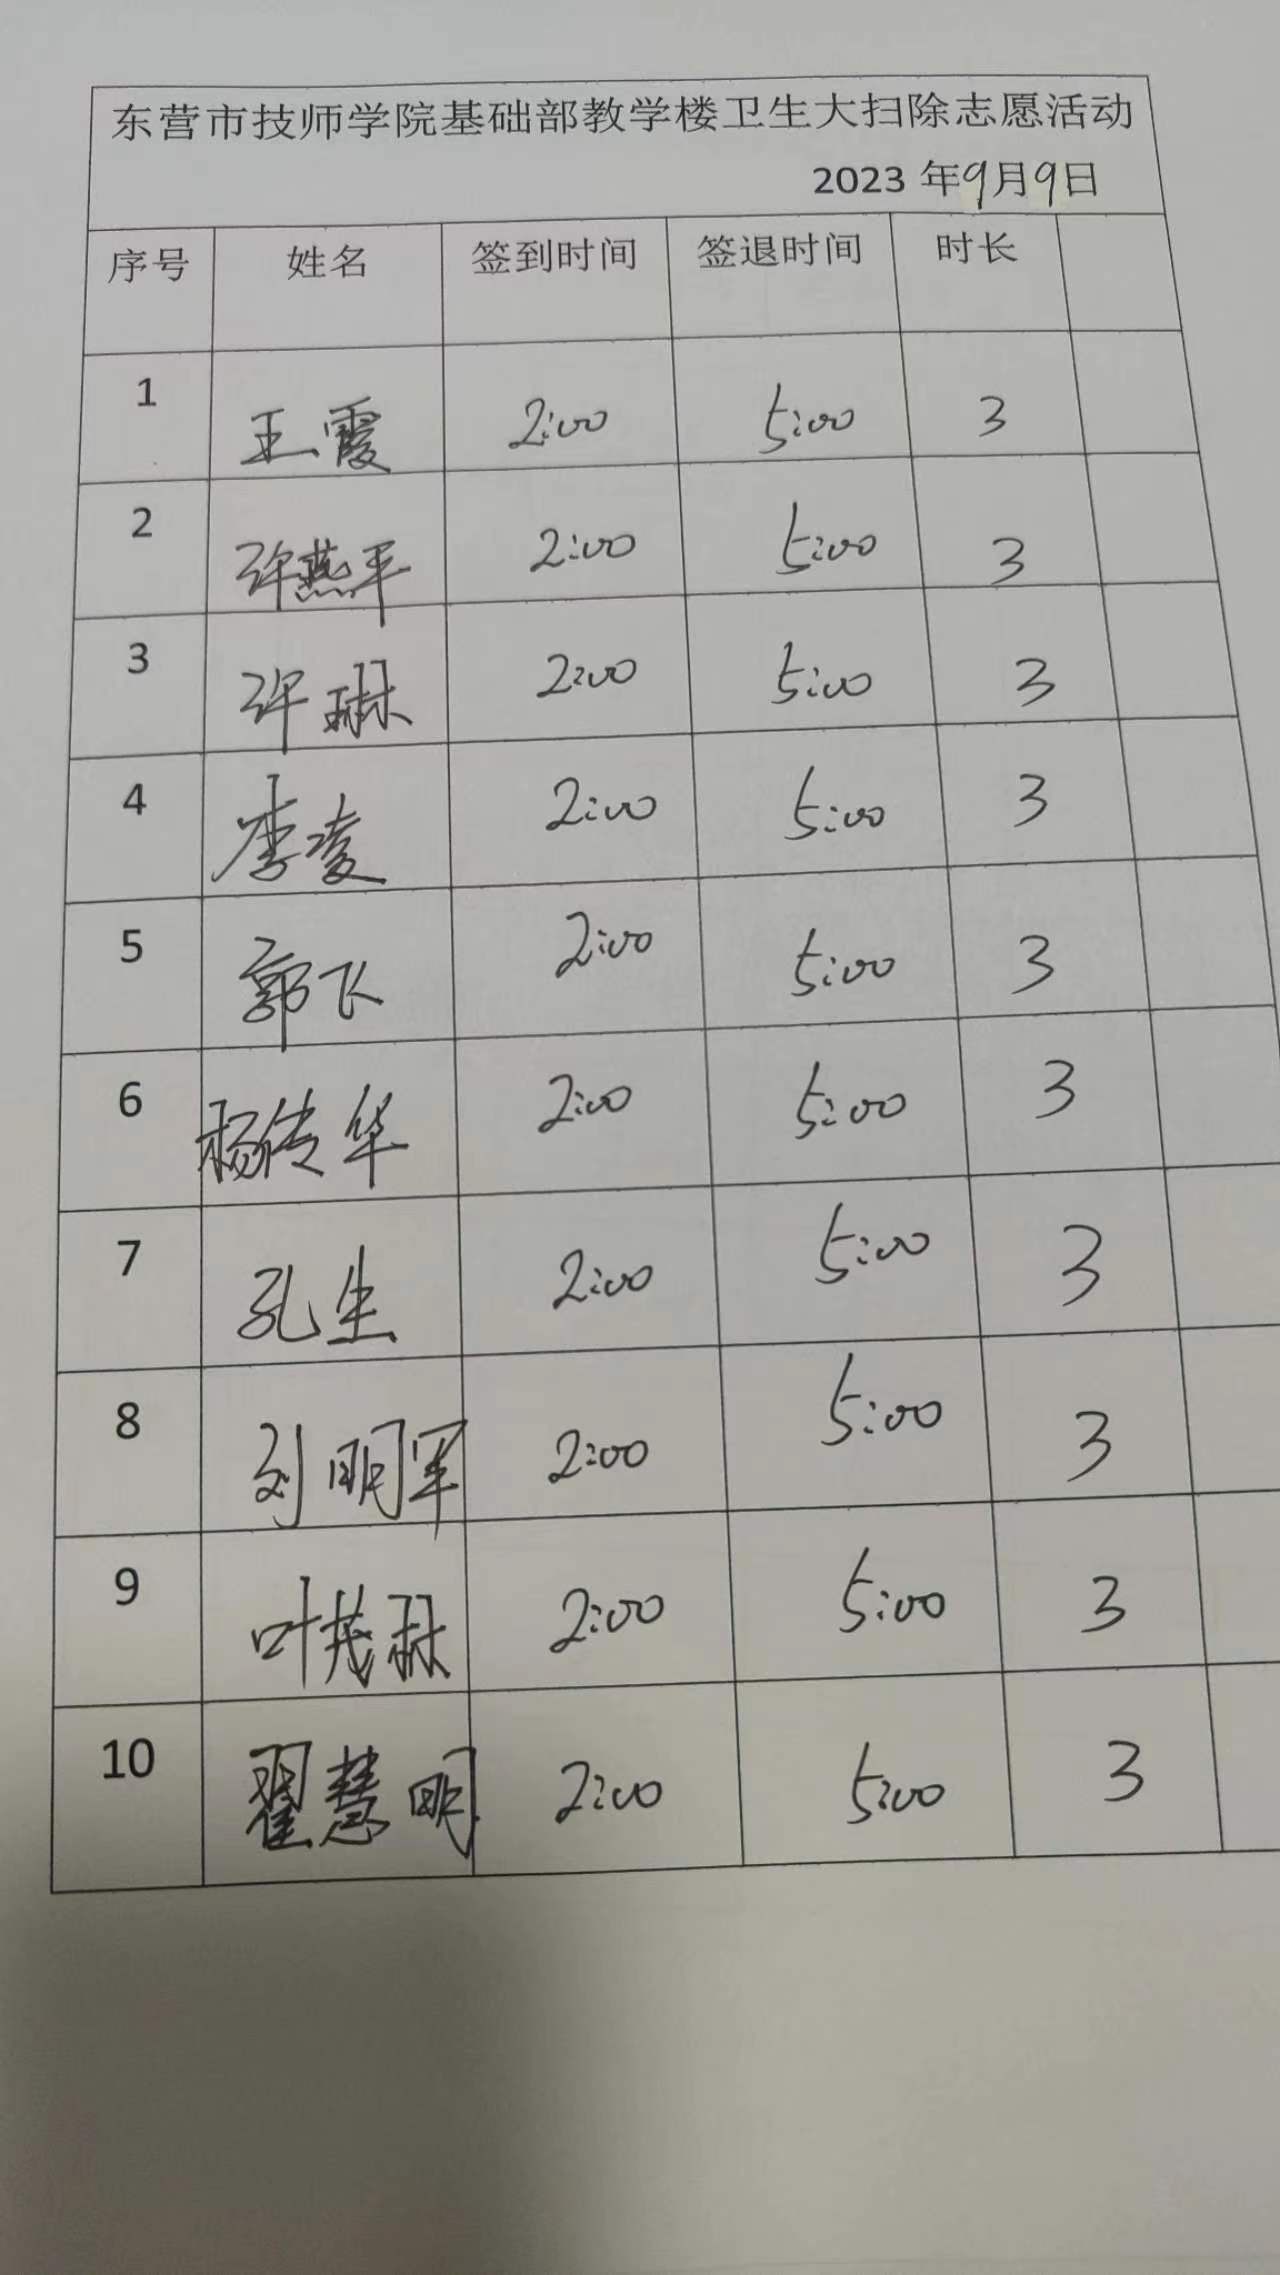 东营市技师学院基础部教学楼卫生大扫除志愿活动
2023 年9月9日
序号 姓名 签到时间 签退时间 时长
1 王霞 2:00 5:00 3
2 许燕平 2:00 5:00 3
3 许琳 2:00 5:00 3
4 李凌 2:00 5:00 3
5 郭飞 2:00 5:00 3
6 杨传华 2:00 5:00 3
7 孔生 2:00 5:00 3
8 刘明军 2:00 5:00 3
9 叶茂琳 2:00 5:00 3
10 翟慧明 2:00 5:00 3